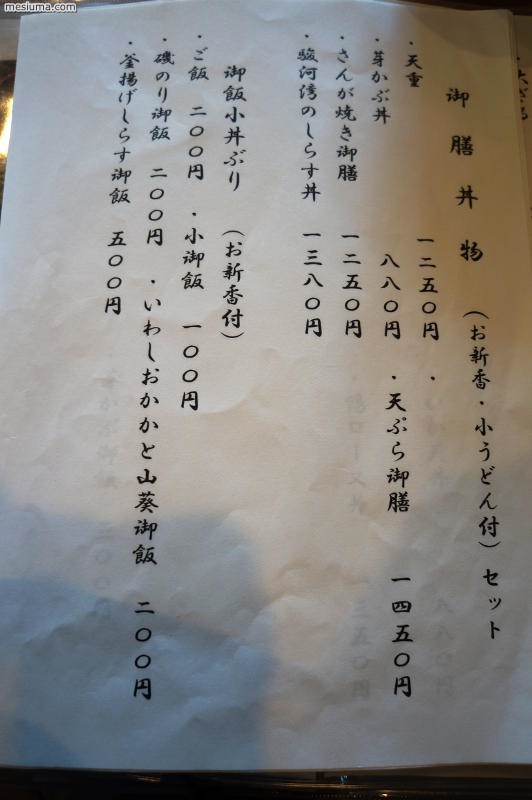 mesiuma.com
御膳丼物 (お新香・小うどん付) セット
・天重 一二五〇円 ・
・芽かぶ丼 八八〇円 ・天ぷら御膳 一四五〇円
・さんが焼き御膳 一二五〇円
・駿河湾のしらす丼 一三八〇円
御飯小丼ぶり (お新香付)
・ご飯 二〇〇円 ・小御飯 一〇〇円
・磯のり御飯 二〇〇円 ・いわしおかかと山葵御飯 二〇〇円
・釜揚げしらす御飯 五〇〇円